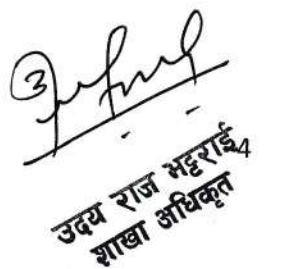 3
उदय राज भट्टराई
शाखा अधिकृत